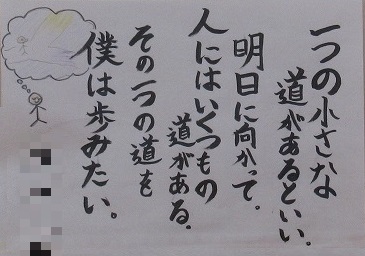 一つの小さな
道があるといい。
明日に向かって。
人にはいくつもの
道がある。
その一つの道を
僕は歩みたい。